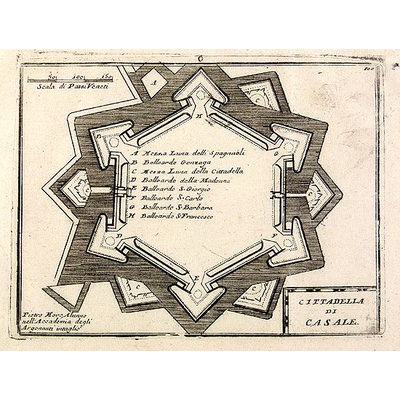 50 100 150
Scala di Passi Veneti
A Mezza Luna delli Spagnuoli
B Balloardo Gonzaga
C Mezza Luna della Cittadella
D Balloardo della Madonna
E Balloardo S. Giorgio
F Balloardo S. Carlo
G Balloardo S. Barbara
H Balloardo S. Francesco
A
H
G
B
D
F
E
Pietro Moro Alunno
nell'Accademia degli
Argonauti intagliò
CITTADELLA
DI
CASALE.